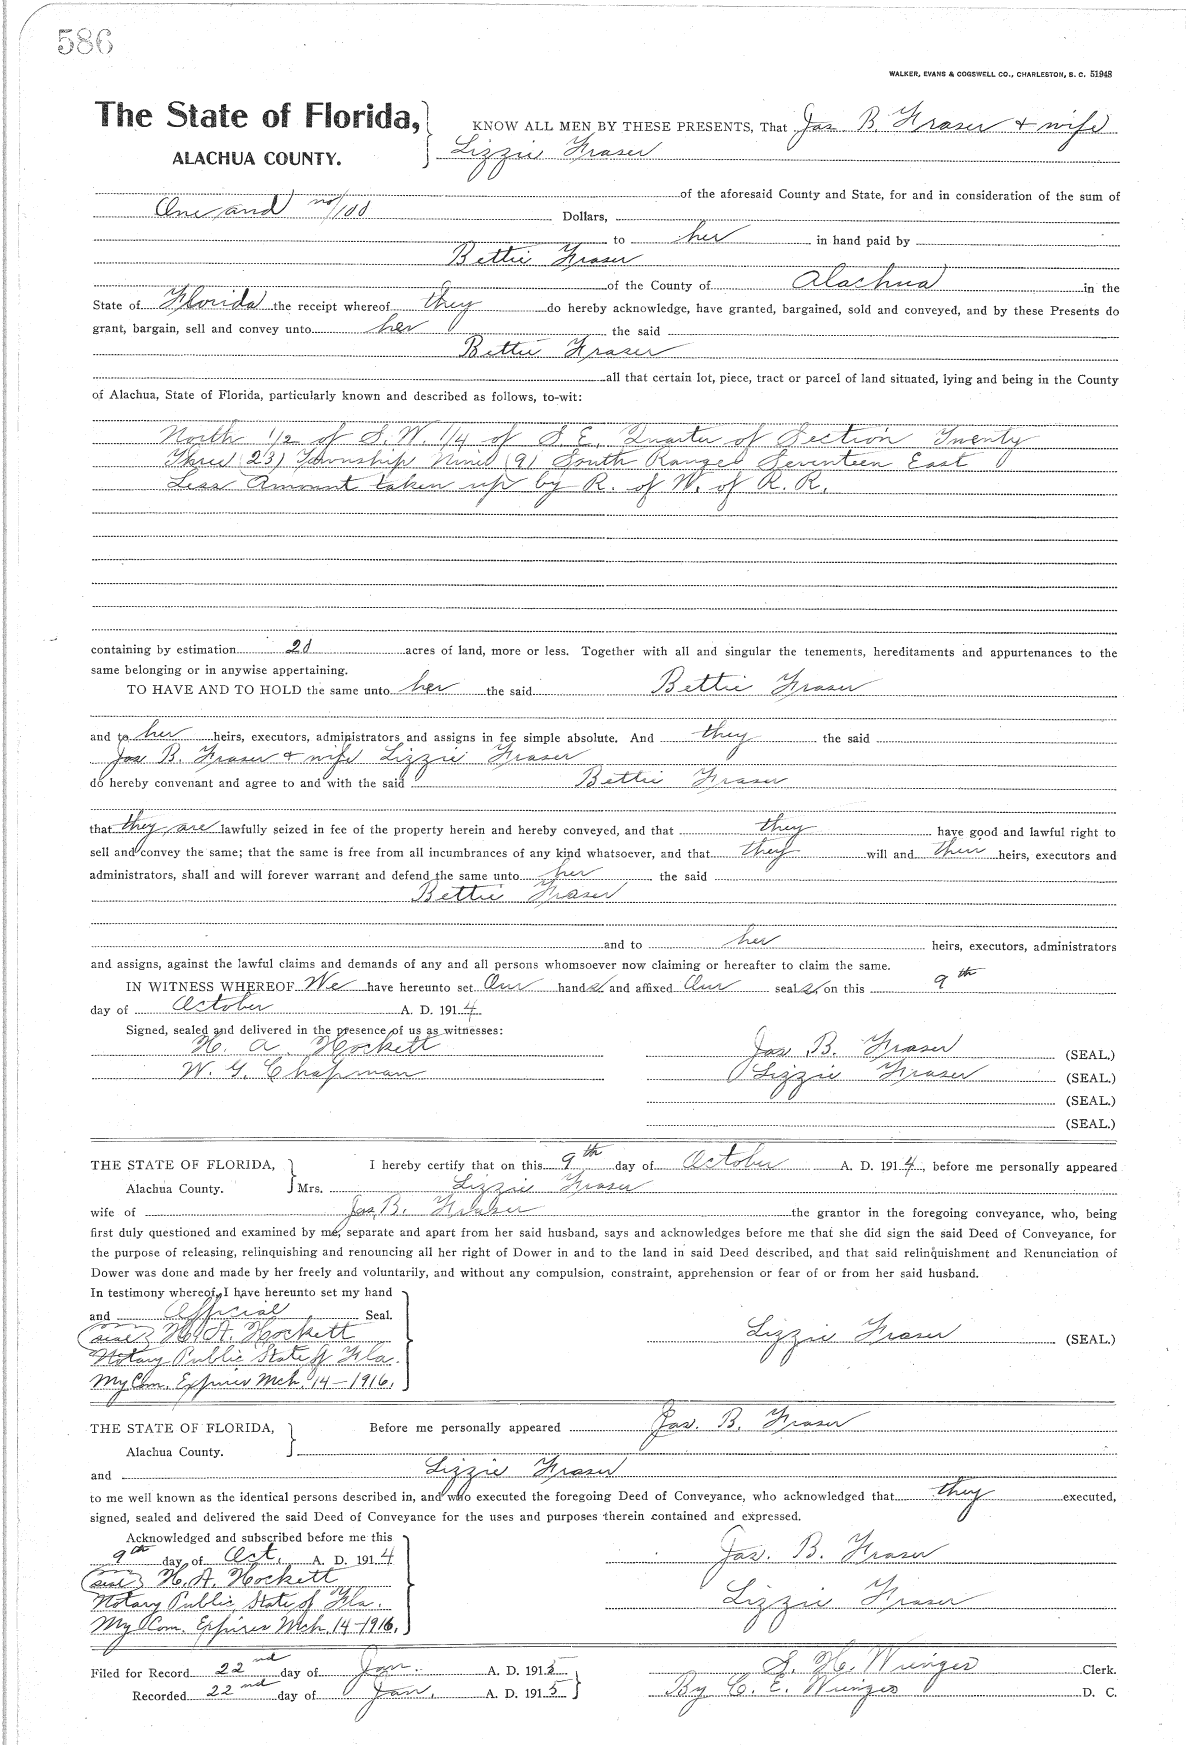 586
WALKER, EVANS & COGSWELL CO., CHARLESTON, S. C. 51948
The State of Florida,
ALACHUA COUNTY.
KNOW ALL MEN BY THESE PRESENTS, That Jas B. Fraser & wife
Lizzie Fraser
of the aforesaid County and State, for and in consideration of the sum of
One and no/100 Dollars,
to her in hand paid by
Bettie Fraser
of the County of Alachua in the
State of Florida the receipt whereof they do hereby acknowledge, have granted, bargained, sold and conveyed, and by these Presents do
grant, bargain, sell and convey unto her the said
Bettie Fraser
all that certain lot, piece, tract or parcel of land situated, lying and being in the County
of Alachua, State of Florida, particularly known and described as follows, to-wit:
North 1/2 of S.W. 1/4 of S.E. Quarter of Section Twenty
Three (23) Township Nine (9) South Range Seventeen East
Less Amount taken up by R. of W. of R. R.
containing by estimation 20 acres of land, more or less. Together with all and singular the tenements, hereditaments and appurtenances to the
same belonging or in anywise appertaining.
TO HAVE AND TO HOLD the same unto her the said Bettie Fraser
and to her heirs, executors, administrators and assigns in fee simple absolute. And they the said
Jas B. Fraser & wife Lizzie Fraser
do hereby convenant and agree to and with the said Bettie Fraser
that they are lawfully seized in fee of the property herein and hereby conveyed, and that they have good and lawful right to
sell and convey the same; that the same is free from all incumbrances of any kind whatsoever, and that they will and their heirs, executors and
administrators, shall and will forever warrant and defend the same unto her the said
Bettie Fraser
and to her heirs, executors, administrators
and assigns, against the lawful claims and demands of any and all persons whomsoever now claiming or hereafter to claim the same.
IN WITNESS WHEREOF We have hereunto set Our hands and affixed Our seals, on this 9th
day of October A. D. 1914
Signed, sealed and delivered in the presence of us as witnesses:
H. A. Hockett Jas B. Fraser (SEAL.)
W. G. Chapman Lizzie Fraser (SEAL.)
(SEAL.)
(SEAL.)
THE STATE OF FLORIDA, I hereby certify that on this 9th day of October A. D. 1914, before me personally appeared
Alachua County. Mrs. Lizzie Fraser
wife of Jas B. Fraser the grantor in the foregoing conveyance, who, being
first duly questioned and examined by me, separate and apart from her said husband, says and acknowledges before me that she did sign the said Deed of Conveyance, for
the purpose of releasing, relinquishing and renouncing all her right of Dower in and to the land in said Deed described, and that said relinquishment and Renunciation of
Dower was done and made by her freely and voluntarily, and without any compulsion, constraint, apprehension or fear of or from her said husband.
In testimony whereof, I have hereunto set my hand
and Official Seal.
(seal) H. A. Hockett Lizzie Fraser (SEAL.)
Notary Public State of Fla.
My Com. Expires Mch. 14-1916.
THE STATE OF FLORIDA, Before me personally appeared Jas. B. Fraser
Alachua County.
and Lizzie Fraser
to me well known as the identical persons described in, and who executed the foregoing Deed of Conveyance, who acknowledged that they executed,
signed, sealed and delivered the said Deed of Conveyance for the uses and purposes therein contained and expressed.
Acknowledged and subscribed before me this
9th day of Oct. A. D. 1914 Jas. B. Fraser
(seal) H. A. Hockett
Notary Public, State of Fla. Lizzie Fraser
My Com. Expires Mch. 14-1916.
Filed for Record 22nd day of Jan. A. D. 1915 S. H. Wienges Clerk.
Recorded 22nd day of Jan. A. D. 1915 By C. E. Wienges D. C.